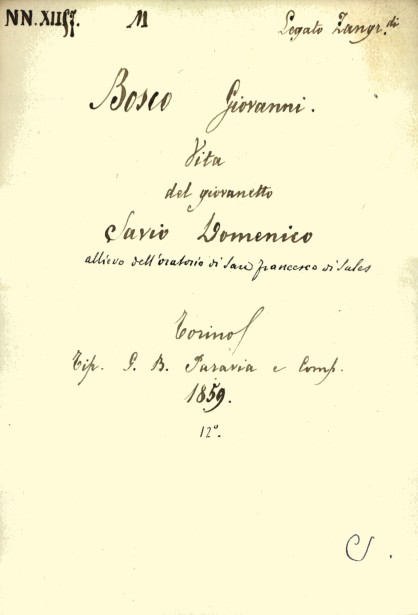 M Legato Zangr.di
Bosco Giovanni.
Vita
del giovanetto
Savio Domenico
allievo dell'oratorio di San Francesco di Sales
Torino
Tip. G. B. Paravia e Comp.
1859.
12°.